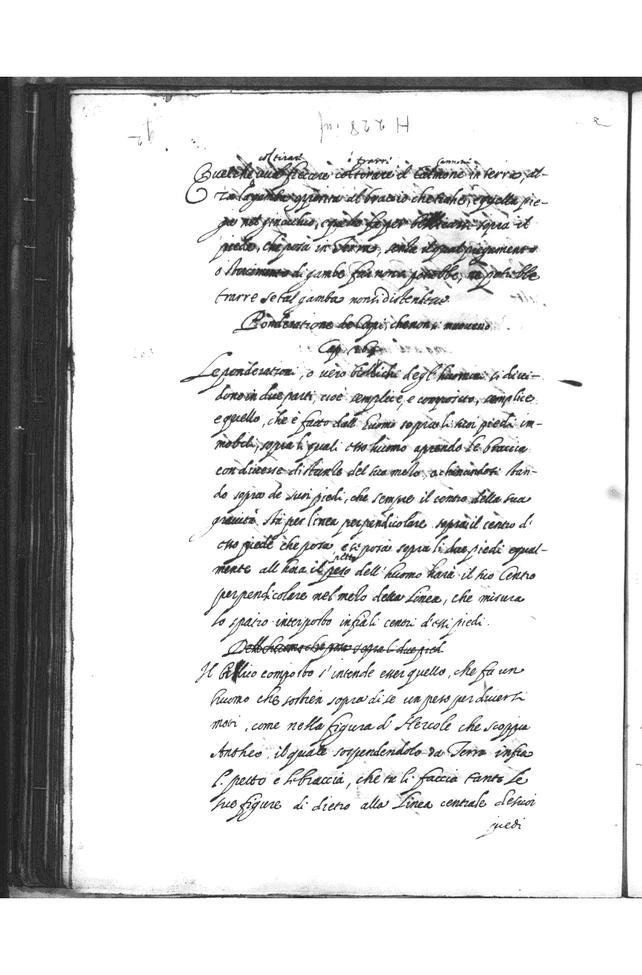 H 228 inf
col tirare i trarre cannone
Quel che vuol ficcare col tirare il Calmone in terra, al-
za la gamba opposita al braccio che tiene, e quella pie-
ga nel ginocchio, e questo fa per bilicarsi sopra il
piede, che posa in Terra, senza il qual piegamento
o di gambe far non potrebbe, ne potrebbe
trarre se tal gamba non si distendesse
Ponderatione de Corpi, che non si muovono
Cap.
Le ponderationi, o vero bilichi degl'huomini si divi-
dono in due parti, cioè semplice, e composto, semplice
e quello, che è fatto dall'huomo sopra li suoi piedi im-
mobili, sopra li quali esso huomo aprendo le braccia
con diverse distanze dal suo mezo, o chinandosi stan-
do sopra de suoi piedi, che sempre il centro della sua
gravità stà per linea perpendicolare sopra il centro d'
esso piede che posa, e si posa sopra li due piedi equal-
mente all'hora il peso dell'huomo harà il suo Centro
petto
perpendicolare nel mezo della Linea, che misura
lo spatio interposto infra li centri d'essi piedi.
Dell'huomo che posa sopra li due piedi
Il Bilico composto s'intende esser quello, che fà un
huomo che sostien sopra di se un peso per diversi
moti, come nella figura di Hercole che scoppia
Antheo, il quale sospendendolo da Terra infra
il petto e le braccia, che tu li faccia tanto le
sue figure di dietro alla Linea centrale de suoi
piedi